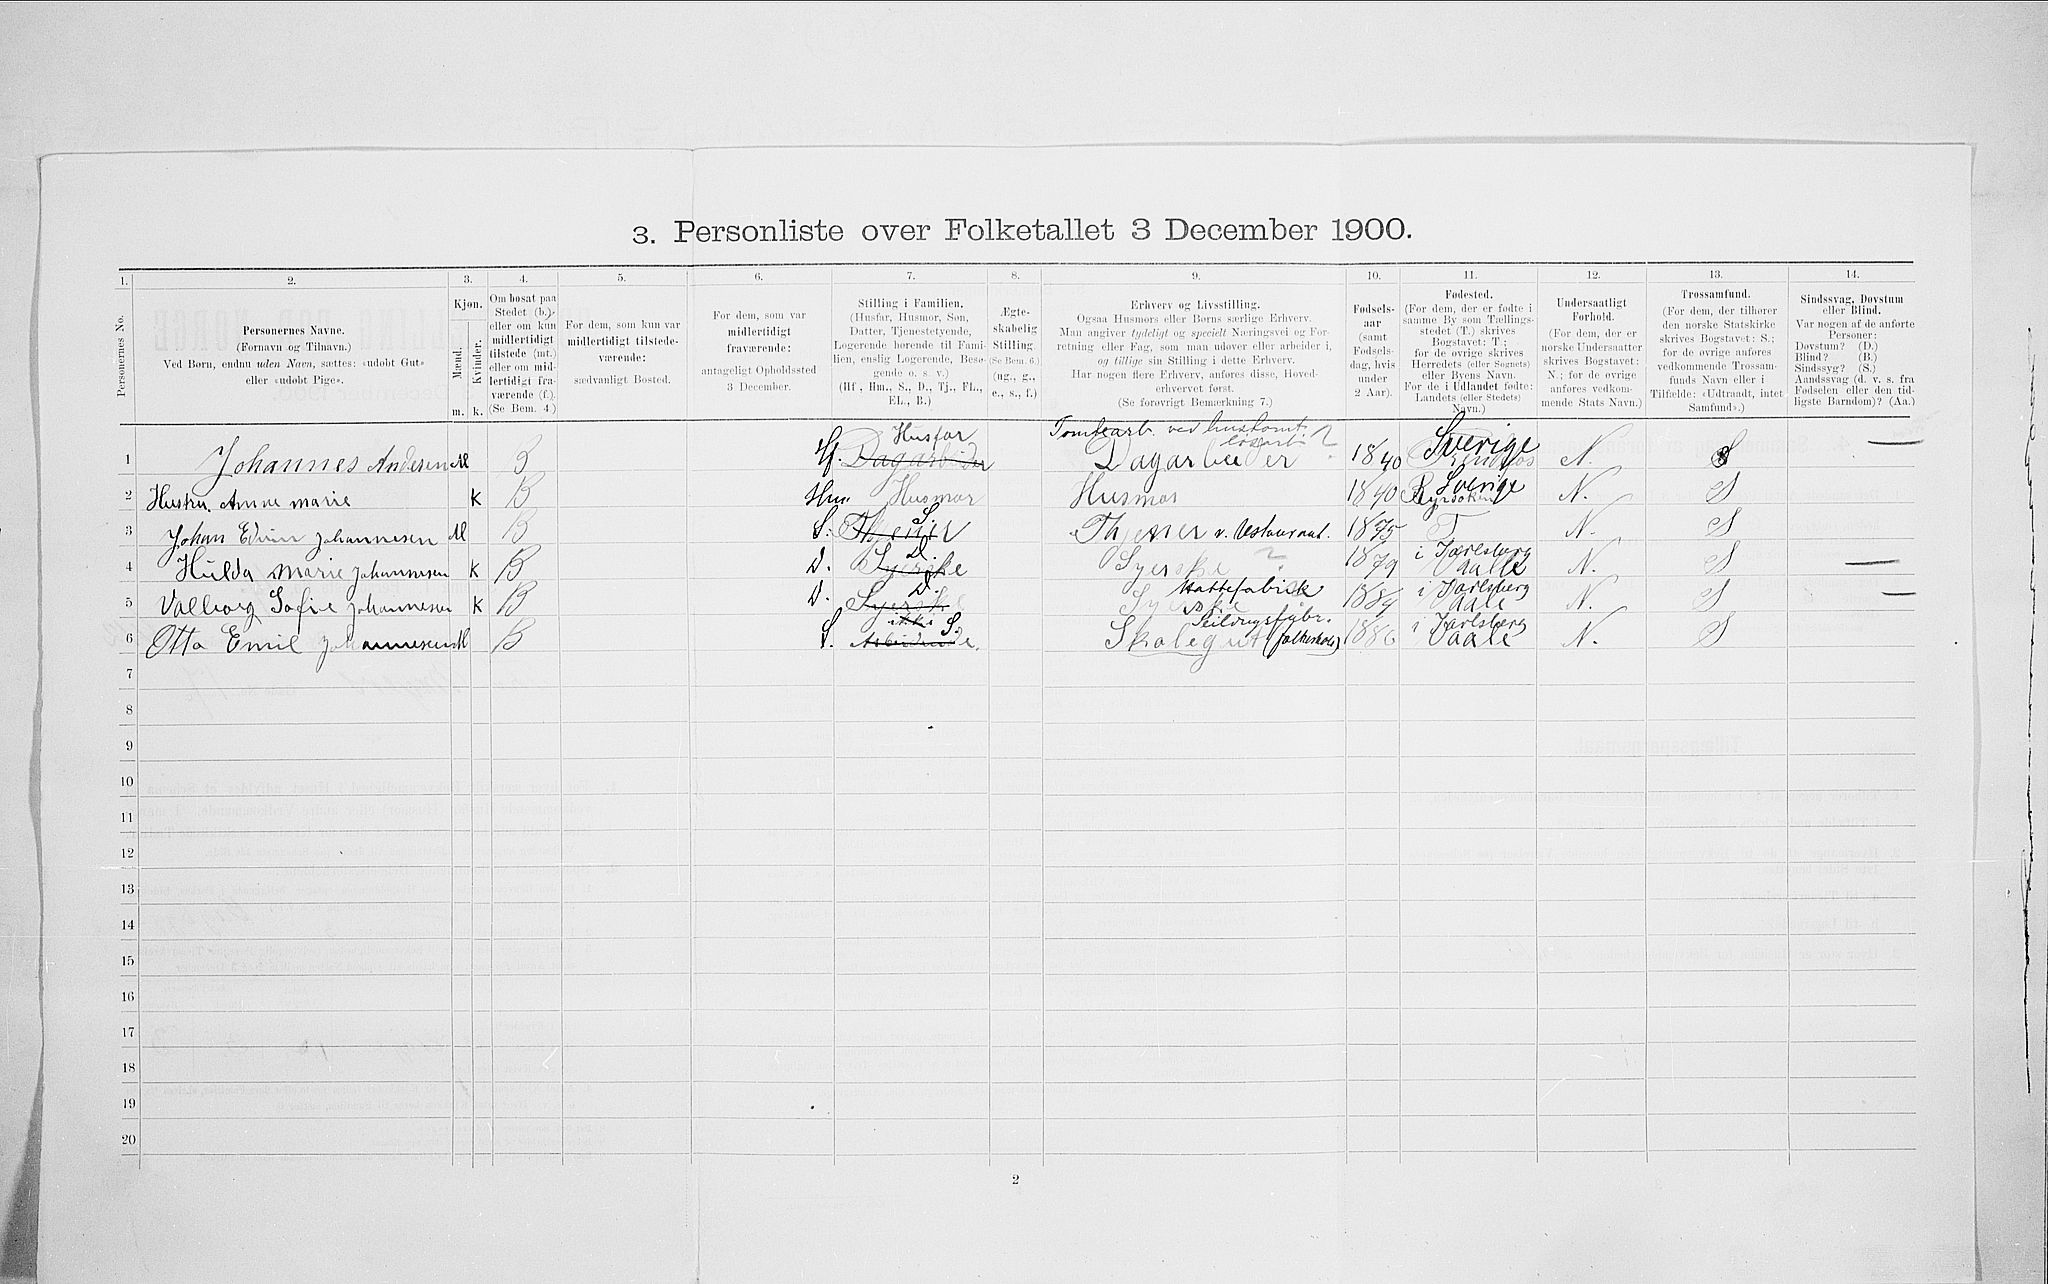 3. Personliste over Folketallet 3 December 1900.
1. 2. 3. 4. 5. 6. 7. 8. 9. 10. 11. 12. 13. 14.
Personernes No.
Personernes Navne.
(Fornavn og Tilnavn.)
Ved Børn, endnu uden Navn, sættes: «udøbt Gut»
eller «udøbt Pige».
Kjøn.
Mænd.
Kvinder.
m. k.
Om bosat paa
Stedet (b.)
eller om kun
midlertidigt
tilstede (mt.)
eller om mid-
lertidigt fra-
værende (f.).
(Se Bem. 4.)
For dem, som kun var
midlertidigt tilstede-
værende:
sædvanligt Bosted.
For dem, som var
midlertidigt
fraværende:
antageligt Opholdssted
3 December.
Stilling i Familien.
(Husfar, Husmor, Søn,
Datter, Tjenestetyende,
Logerende hørende til Fami-
lien, enslig Logerende, Besø-
gende o. s. v.)
(Hf., Hm., S., D., Tj., FL.,
EL., B.)
Ægte-
skabelig
Stilling.
(Se Bem. 6.)
(ug., g.,
e., s., f.)
Erhverv og Livsstilling.
Ogsaa Husmors eller Børns særlige Erhverv.
Man angiver tydeligt og specielt Næringsvei og For-
retning eller Fag, som man udøver eller arbeider i,
og tillige sin Stilling i dette Erhverv.
Har nogen flere Erhverv, anføres disse, Hoved-
erhvervet først.
(Se forøvrigt Bemærkning 7.)
Fødsels-
aar
(samt
Fødsels-
dag, hvis
under
2 Aar).
Fødested.
(For dem, der er fødte i
samme By som Tællings-
stedet (T.) skrives
Bogstavet: T.;
for de øvrige skrives
Herredets (eller Sognets)
eller Byens Navn.
For de i Udlandet fødte:
Landets (eller Stedets)
Navn.)
Undersaatligt
Forhold.
(For dem, der er
norske Undersaatter
skrives Bogstavet:
N.; for de øvrige
anføres vedkom-
mende Stats Navn.)
Trossamfund.
(For dem, der tilhører
den norske Statskirke
skrives Bogstavet: S.;
for de øvrige anføres
vedkommende Trossam-
funds Navn eller i
Tilfælde: «Udtraadt, intet
Samfund».)
Sindssvag, Døvstum
eller Blind.
Var nogen af de anførte
Personer:
Døvstum? (D.)
Blind? (B.)
Sindssyg? (S.)
Aandssvag (d. v. s. fra
Fødselen eller den tid-
ligste Barndom)? (Aa.)
1 Johannes Andersen M B Hf. Husfar Dagarbeider Tomtearb. ved Dagarbeider ? 1840 Sverige N. S
2 Hustru Anne marie K B Hm Husmor Husmor 1840 Sverige N. S
3 Johan Edvin Johannesen M B S. S. Thjener Thjener v. Restaurant. 1875 T N. S
4 Hulda Marie Johannesen K B D. D. Syerske Syerske ? 1879 i Jarlsberg Vaale N. S
5 Valborg Sofie Johannesen K B D. D. Syerske Syerske Hattefabrik 1884 i Jarlsberg Vaale N. S
6 Otto Emil Johannesen M B S. ikke S. Arbeidende. Skolegut (folkeskole) 1886 i Jarlsberg Vaale N. S
7
8
9
10
11
12
13
14
15
16
17
18
19
20
2